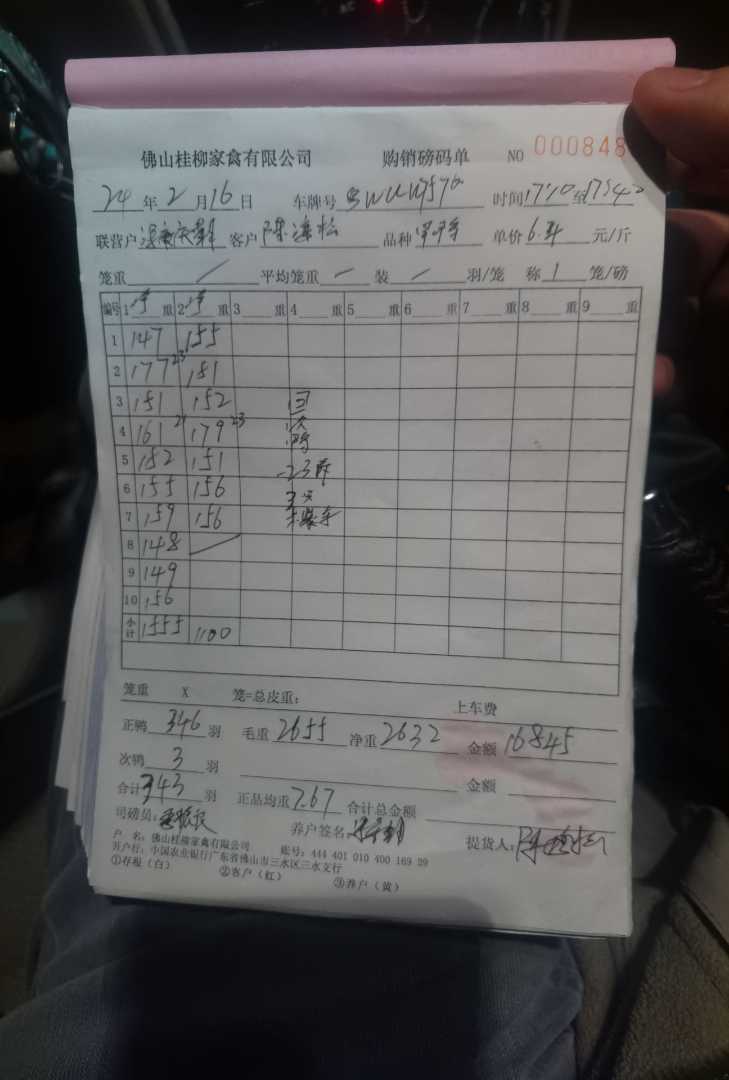 佛山桂柳家禽有限公司 购销磅码单 NO 000848
24 年 2 月 16 日 车牌号 时间 1710 至
联营户 客户 陈 松 品种 单价 6.4 元/斤
笼重 / 平均笼重 — 装 — 羽/笼 称 1 笼/磅
编号 1 净 重 2 净 重 3 重 4 重 5 重 6 重 7 重 8 重 9 重
1 147 155
2 177 23 181
3 151 152 回
4 161 21 179 23
5 152 151 -23
6 155 156 3只
7 159 156
8 148
9 149
10 156
小计 1555 1100
笼重 X 笼=总皮重: 上车费
正鸭 346 羽 毛重 2655 净重 2632 金额 16845
次鸭 3 羽 金额
合计 343 羽 正品均重 7.67 合计总金额
司磅员: 养户签名 提货人:
户 名: 佛山桂柳家禽有限公司 账号: 444 401 010 400 169 29
开户行: 中国农业银行广东省佛山市三水区三水支行
①存根(白) ②客户(红) ③养户(黄)